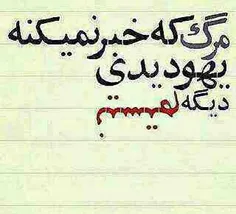 مرگ که خبر نمیکنه
یهو دیدی
دیگه